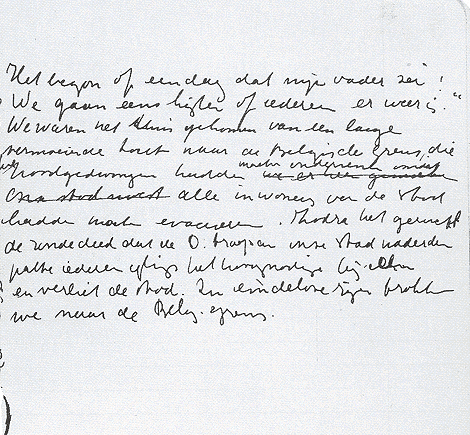 Het begon op een dag dat mijn vader zei:
We gaan eens kijken of iedereen er weer is."
We waren net thuis gekomen van een lange
vermoeiende tocht naar de Belgische grens, die
noodgedwongen hadden moeten ondernemen omdat
alle inwoners van de stad
hadden moeten evacueren. Zhodra het gerucht
de ronde deed dat de D. troepen onze stad naderden
pakte iedereen ijlings het hoognodige bij elkaar
en verliet de stad. In eindeloze rijen trokken
we naar de Belg. grens.